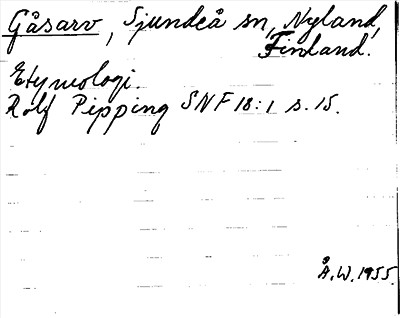 Gåsarv, Sjundeå sn, Nyland,
Finland.
Etymologi.
Rolf Pipping SNF 18:1 s. 15.
Å.W. 1955.